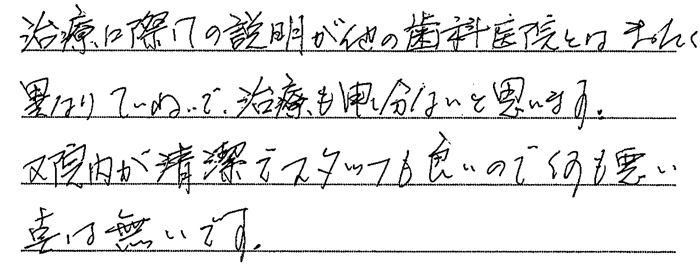 治療に際しての説明が他の歯科医院とはまったく
異なりていねいで、治療も申し分ないと思います。
又院内が清潔でスタッフも良いので何も悪い
点は無いです。